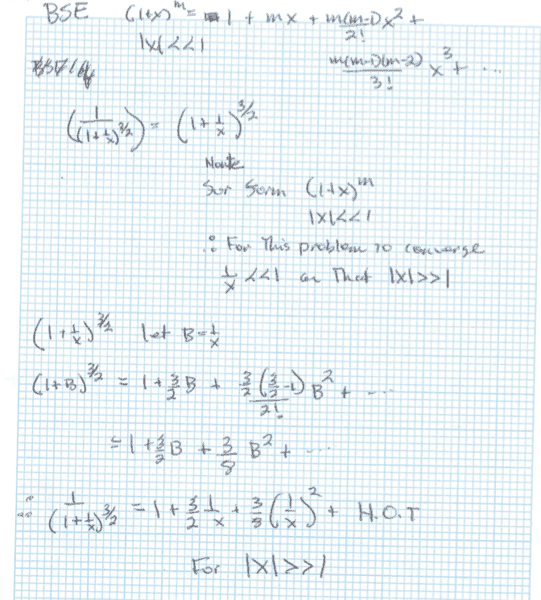 BSE (1+x)^m = 1 + mx + m(m-1)x^2/2! +
|x|<<1 m(m-1)(m-2)/3! x^3 + ...
(1/(1+1/x)^3/2) = (1+1/x)^3/2
Note
for form (1+x)^m
|x|<<1
∴ For This problem to converge
1/x <<1 or That |x|>>1
(1+1/x)^3/2 let B=1/x
(1+B)^3/2 = 1+3/2 B + 3/2(3/2-1)/2! B^2 + ...
= 1+3/2 B + 3/8 B^2 + ...
∴ 1/(1+1/x)^3/2 = 1+3/2 1/x + 3/8 (1/x)^2 + H.O.T
For |x|>>1